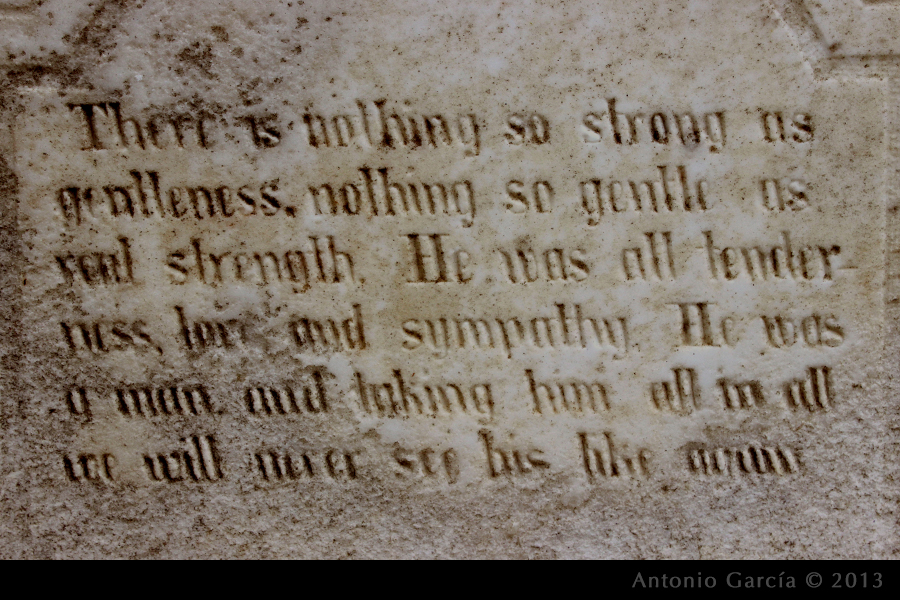 There is nothing so strong as
gentleness, nothing so gentle as
real strength. He was all tender-
ness, love and sympathy. He was
a man, and taking him all in all
we will never see his like again
Antonio García © 2013